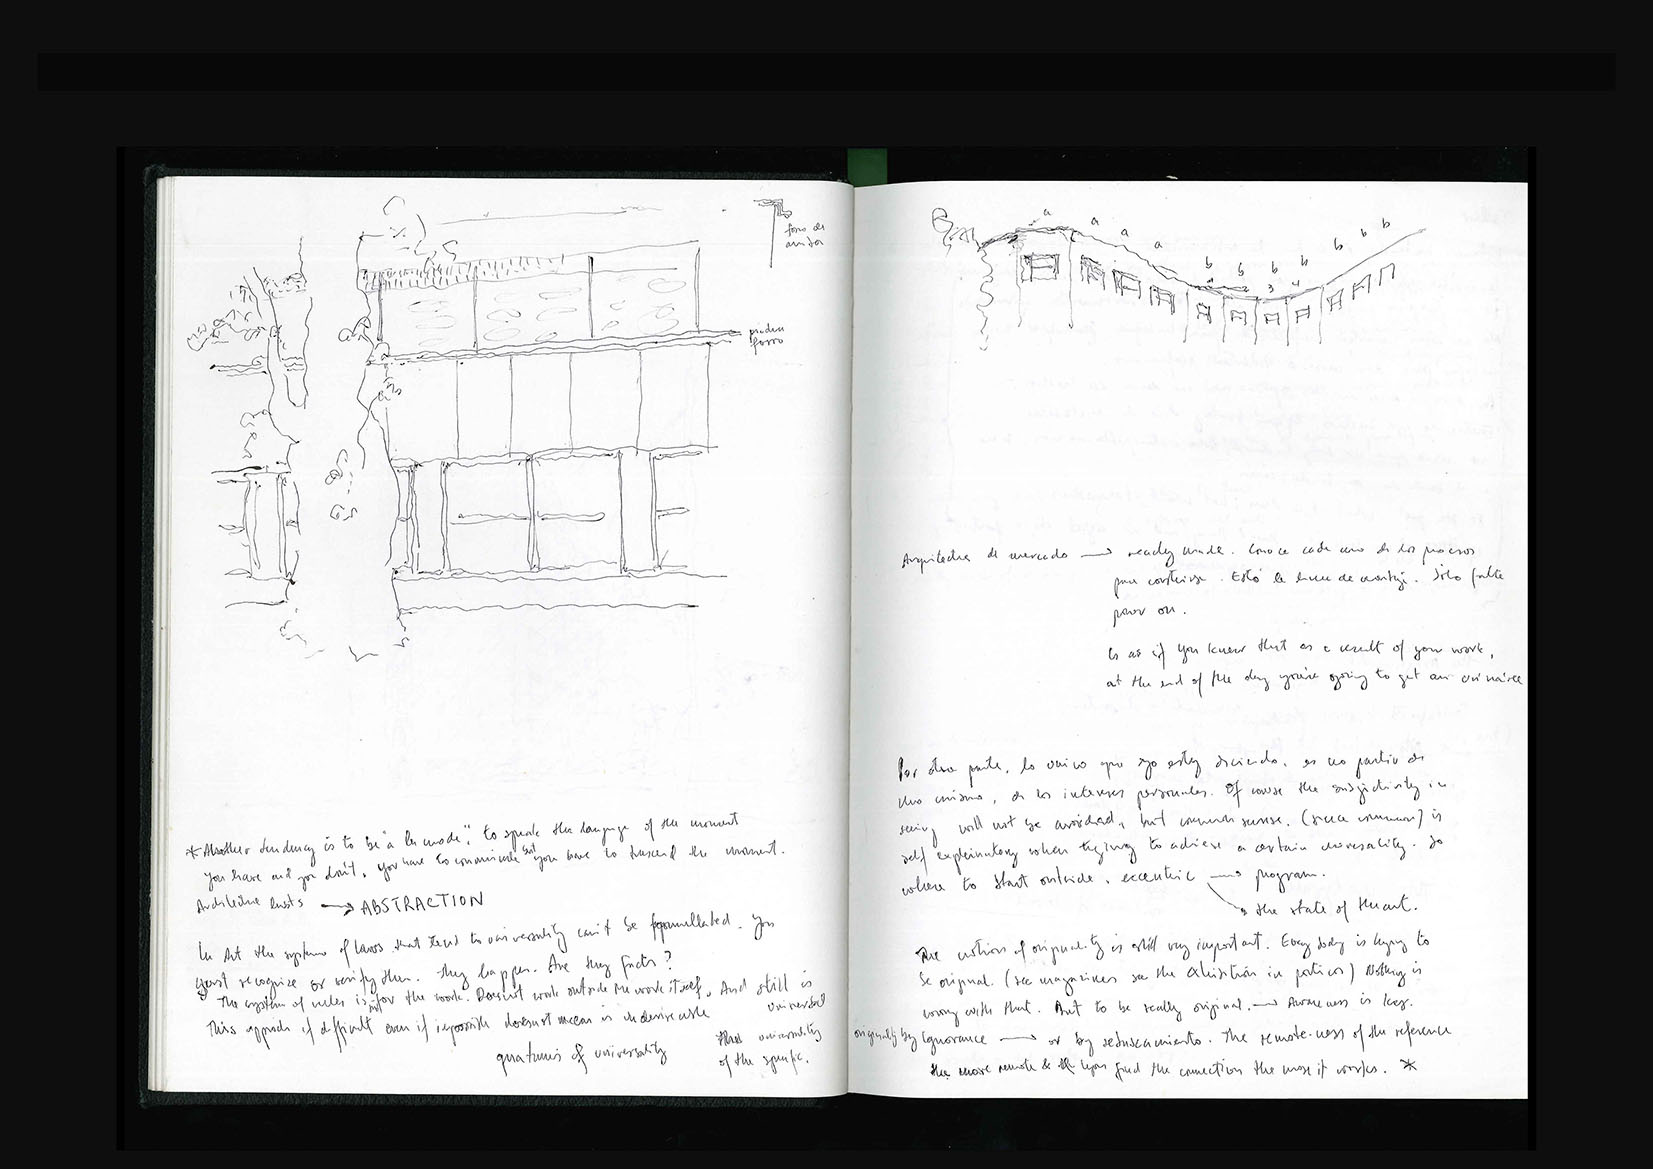 piedra
forro
* Another tendency is to be "a la mode", to speak the language of the moment
you have and you don't, you have to communicate but you have to trascend the moment.
Architecture →→ ABSTRACTION
In Art the systems of laws that tend to universality can't be formullated. You
just recognize or verify them. They happen. Are they facts?
The system of rules is for the work. Doesn't work outside the work itself. And still is
universal
This approach if difficult even if impossible doesnot mean is undesireable
that universality
of the specific.
quatums of universality
a a a a b b b b b b b
3 4
Arquitectura de mercado → ready made. Conoce cada uno de los procesos
para construirse. Está la linea de montaje. Sólo falta
poner on.
Is as if you knew that as a result of your work,
at the end of the day you're going to get an
Por otra parte, lo unico que yo estoy diciendo, es no partir de
uno mismo, de los intereses personales. Of course the in
seeing will not be avoided, but common sense. (sense common) is
self explainatory when trying to achieve a certain universality. So
where to start outside, eccentric → program.
→ the state of the art.
The notion of originality is still very important. Everybody is trying to
be original. (see magazines see the exhibition in particular) Nothing is
wrong with that. But to be really original. → Awareness is key.
originality by ignorance → or by. The remote-ness of the reference
the more remote & the you find the connection the more it works. *